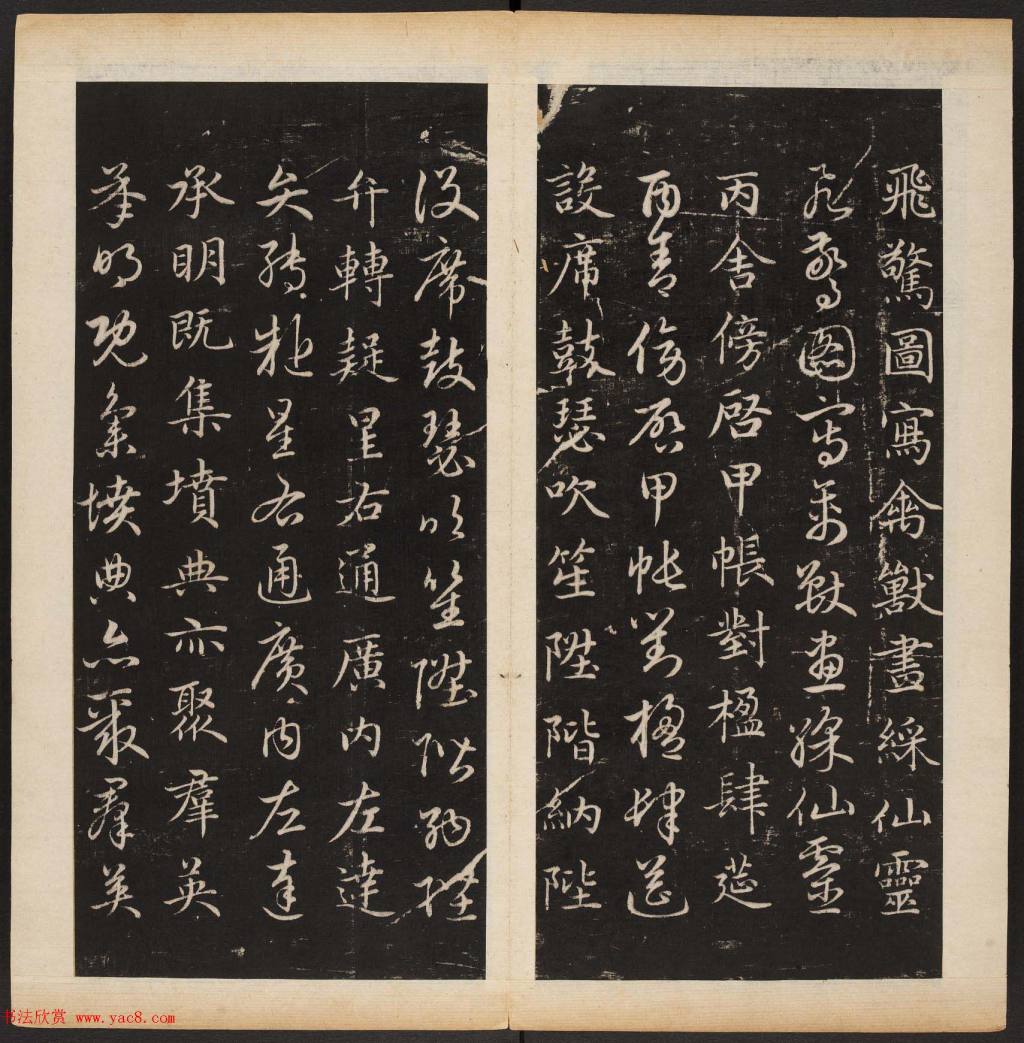 飛驚圖寫禽獸畫綵仙靈
飛驚圖寫禽獸畫綵仙靈
丙舍傍啓甲帳對楹肆莚
丙舍傍啓甲帳對楹肆莚
設席鼓瑟吹笙陞階納陛
設席鼓瑟吹笙陞階納陛
弁轉疑星右通廣内左達
弁轉疑星右通廣内左達
承明既集墳典亦聚羣英
承明既集墳典亦聚羣英
书法欣赏 www.yac8.com